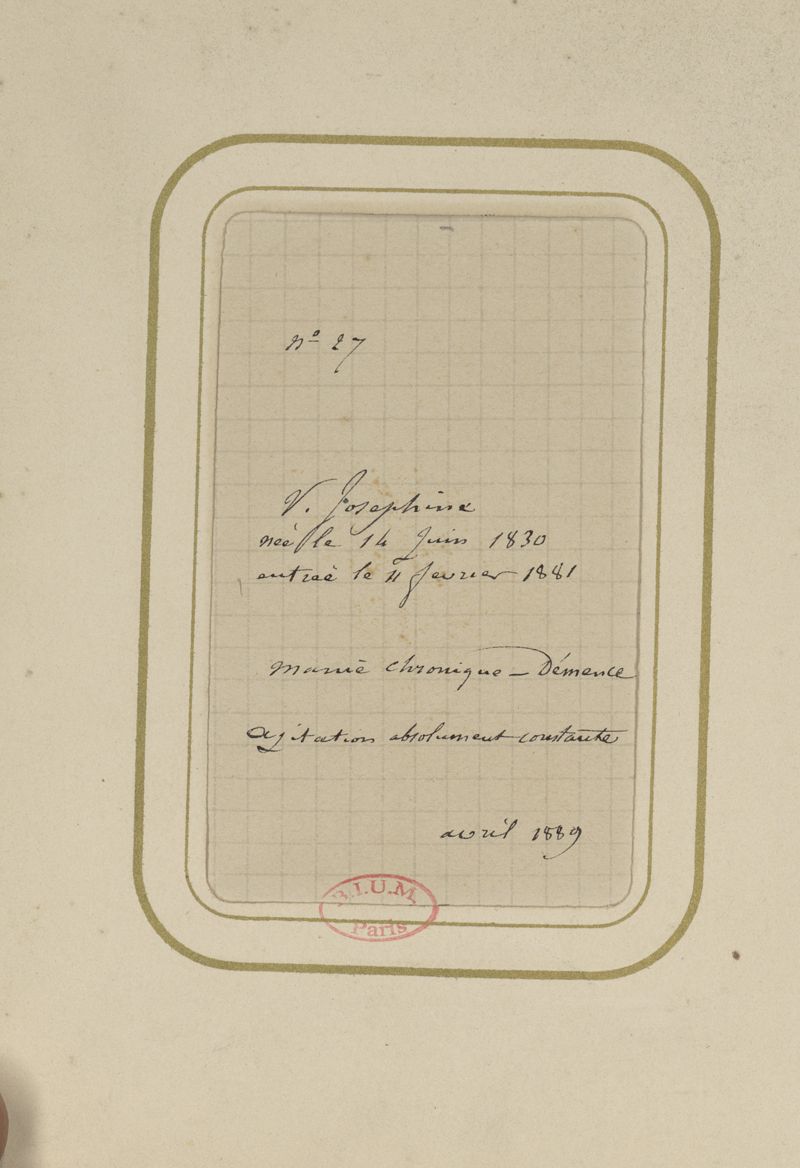 No 27
V. Josephine
née le 14 Juin 1830
entrée le 11 fevrier 1881
manie chronique – Démence
agitation absolument constante
avril 1889
B.I.U.M.
Paris